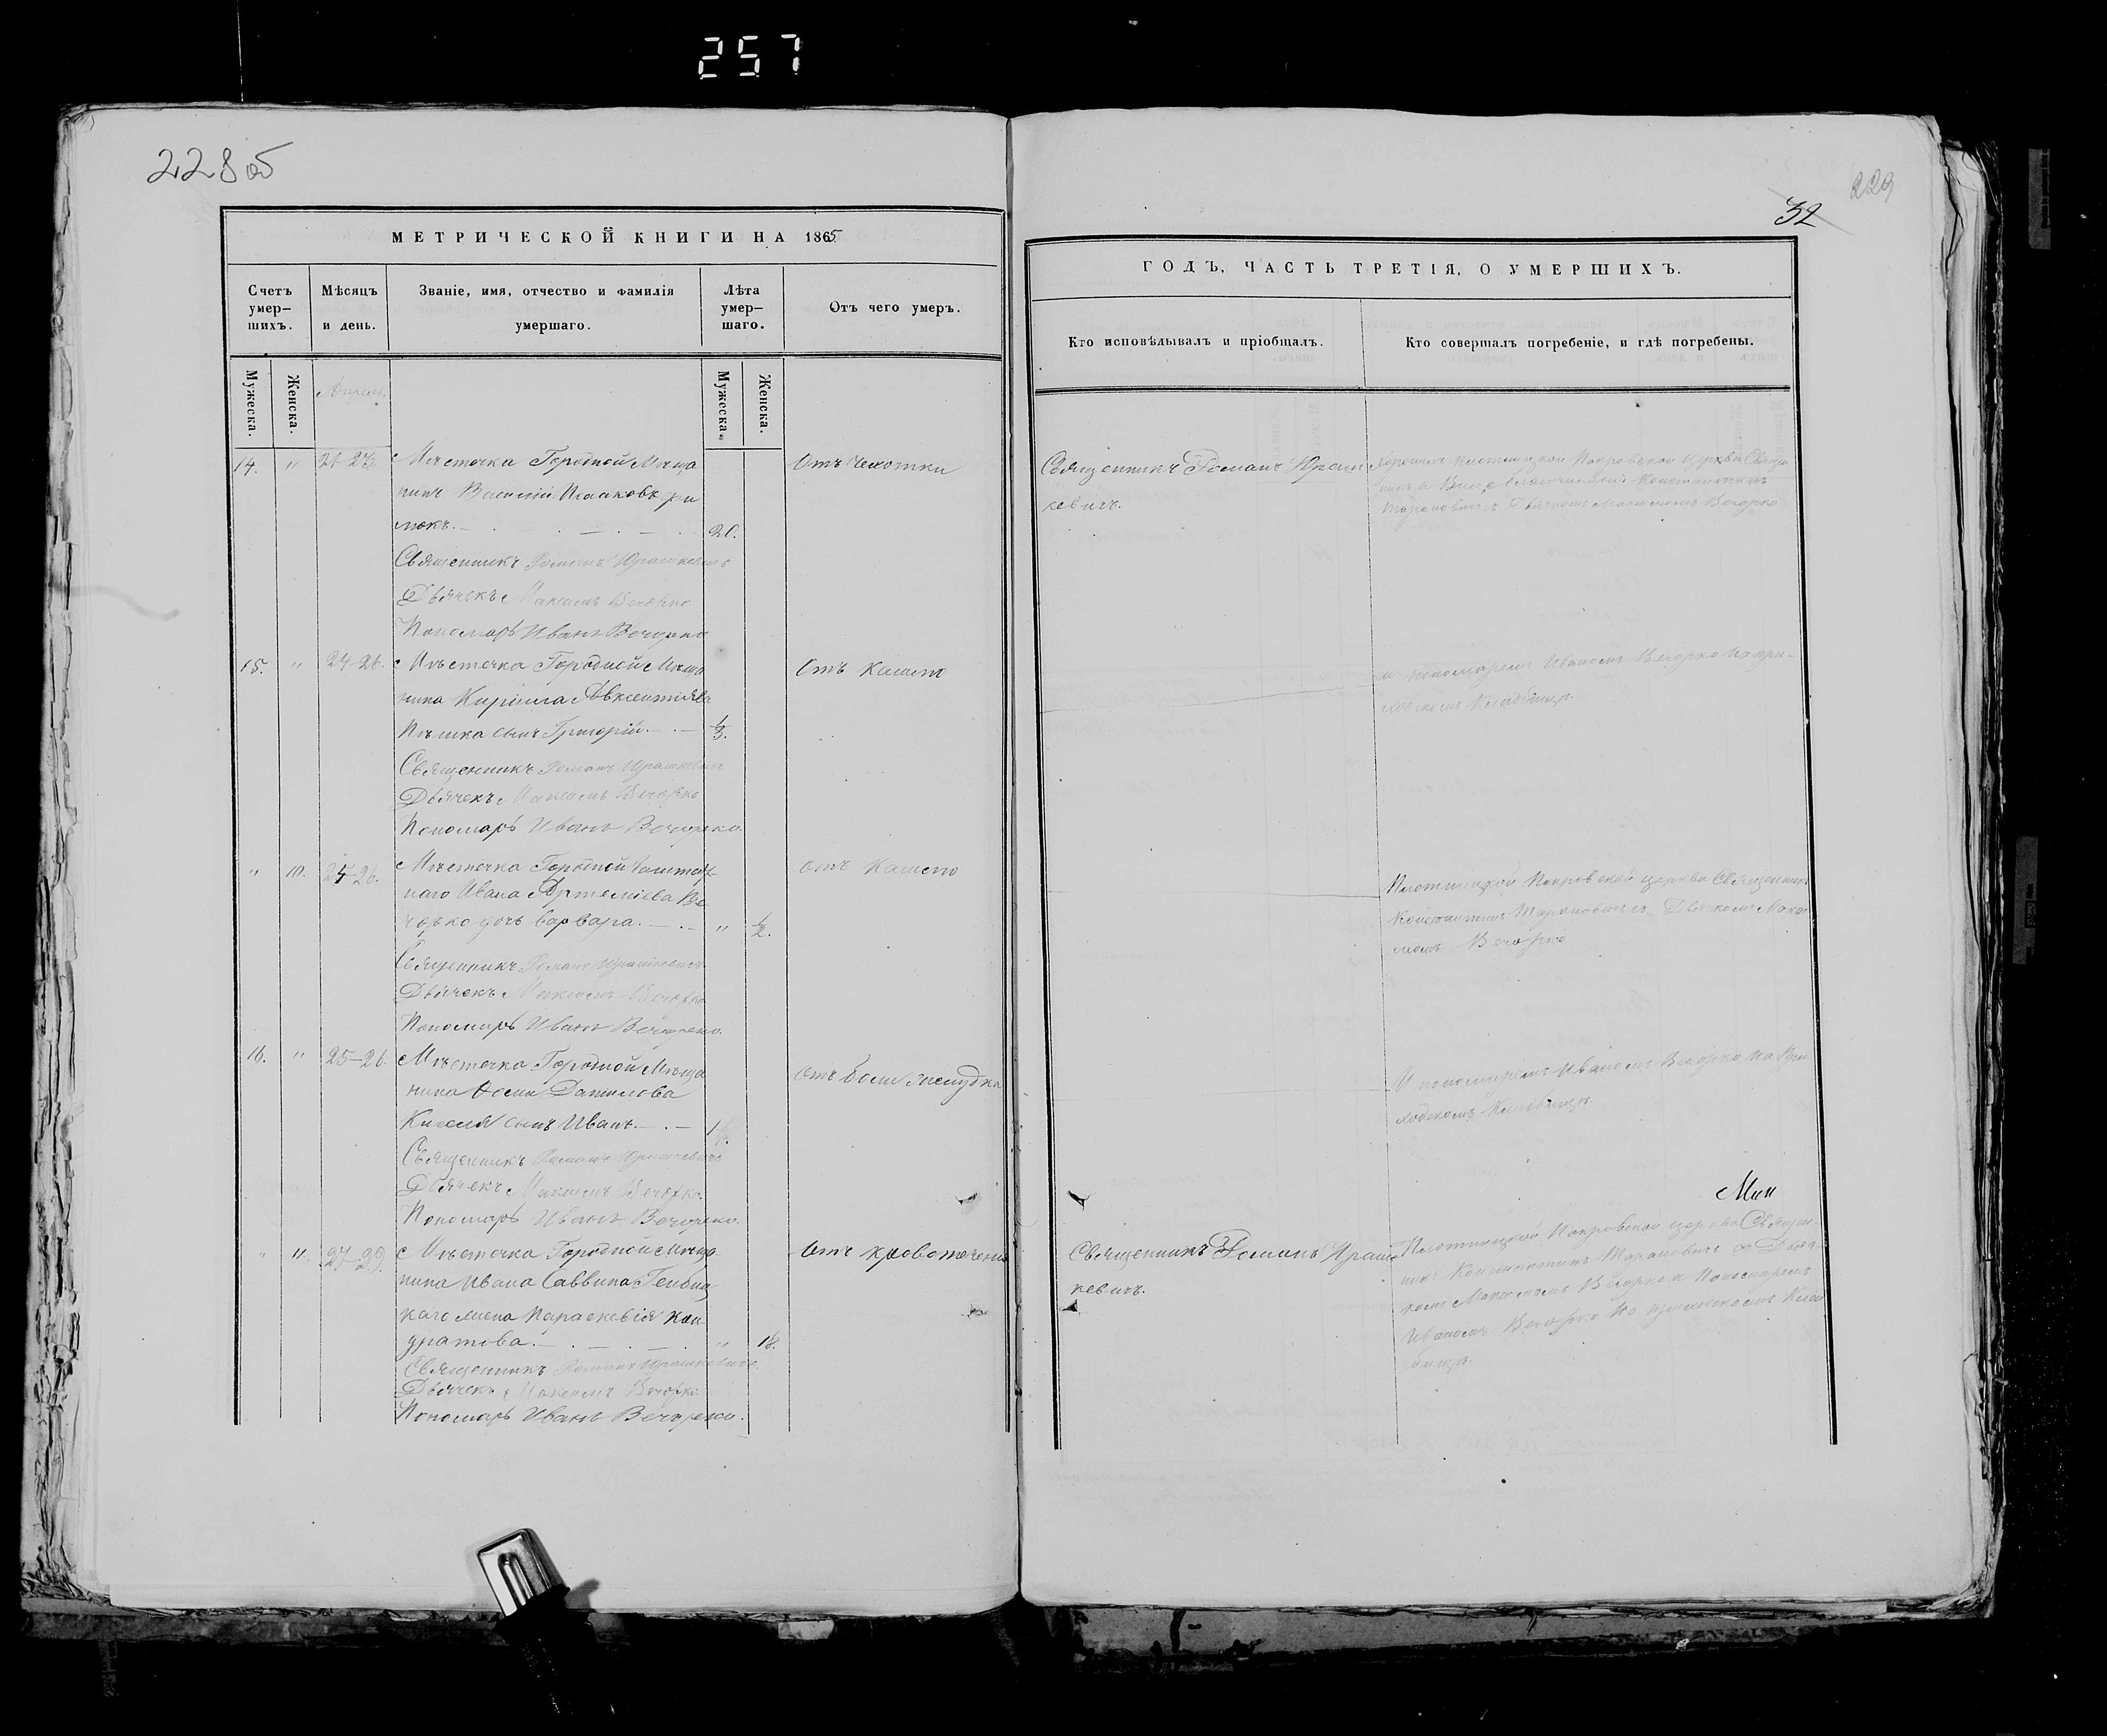 257
228 об
229
32
МЕТРИЧЕСКОЙ КНИГИ НА 1865
Счетъ умер–шихъ.
Мѣсяцъ и день.
Званіе, имя, отчество и фамилія умершаго.
Лѣта умер–шаго.
Отъ чего умеръ.
Мужеска.
Женска.
Апрель.
Мужеска.
Женска.
14. " 21-23. Мѣстечка Городной Мѣща
нинъ Василій Исааковъ
20.
Отъ Чахотки
Священникъ Романъ Юраш
Дьячекъ Максимъ Вечорко
Пономарь Иванъ Вечорко
15. " 24-26. Мѣстечка Городной Мѣща
нина Кирилла Авксентіева
сынъ Григорій. 1/3.
Отъ Кашлю
Священникъ Романъ Юрашкевичъ
Дьячекъ Максимъ Вечорко
Пономарь Иванъ Вечорко.
" 10. 24-26. Мѣстечка Городной
наго Ивана Артеміева Ве
чорко дочь Варвара. " 1/2.
отъ Кашлю
Священникъ Романъ Юрашкевичъ
Дьячекъ Максимъ Вечорко
Пономарь Иванъ Вечорко.
16. " 25-26. Мѣстечка Городной Мѣща
нина Данилова
Киселя сынъ Иванъ.
Отъ Боли желудка
Священникъ Романъ Юрашкевичъ
Дьячекъ Максимъ Вечорко.
Пономарь Иванъ Вечорко.
" 11. 27-29. Мѣстечка Городной Мѣща
нина Ивана Саввина
каго жена Параскевія Кон
дратова. " 18.
Отъ кровотеченія
Священникъ Романъ Юрашкевичъ
Дьячекъ Максимъ Вечорко
Пономарь Иванъ Вечорко.
ГОДЪ, ЧАСТЬ ТРЕТІЯ, О УМЕРШИХЪ.
Кто исповѣдывалъ и пріобщалъ.
Кто совершалъ погребеніе, и гдѣ погребены.
Священникъ Романъ Юраш
кевичъ.
Покровской церкви
Константинъ
Тарановичъ съ Дьячкомъ Максимомъ Вечорко
и пономаремъ Иваномъ Вечорко на при-
ходскомъ Кладбищѣ.
Плотницкой Покровской церкви Священникъ
Константинъ Тарановичъ съ Дьячкомъ Макси
момъ Вечорко
И пономаремъ Иваномъ Вечорко на При
ходскомъ Кладбищѣ.
Священникъ Романъ Юраш
кевичъ.
Плотницкой Покровской церкви Священ-
никъ Константинъ Тарановичъ съ Дьяч-
комъ Максимомъ Вечорко и Пономаремъ
Иваномъ Вечорко На приходскомъ Клад
бищѣ.